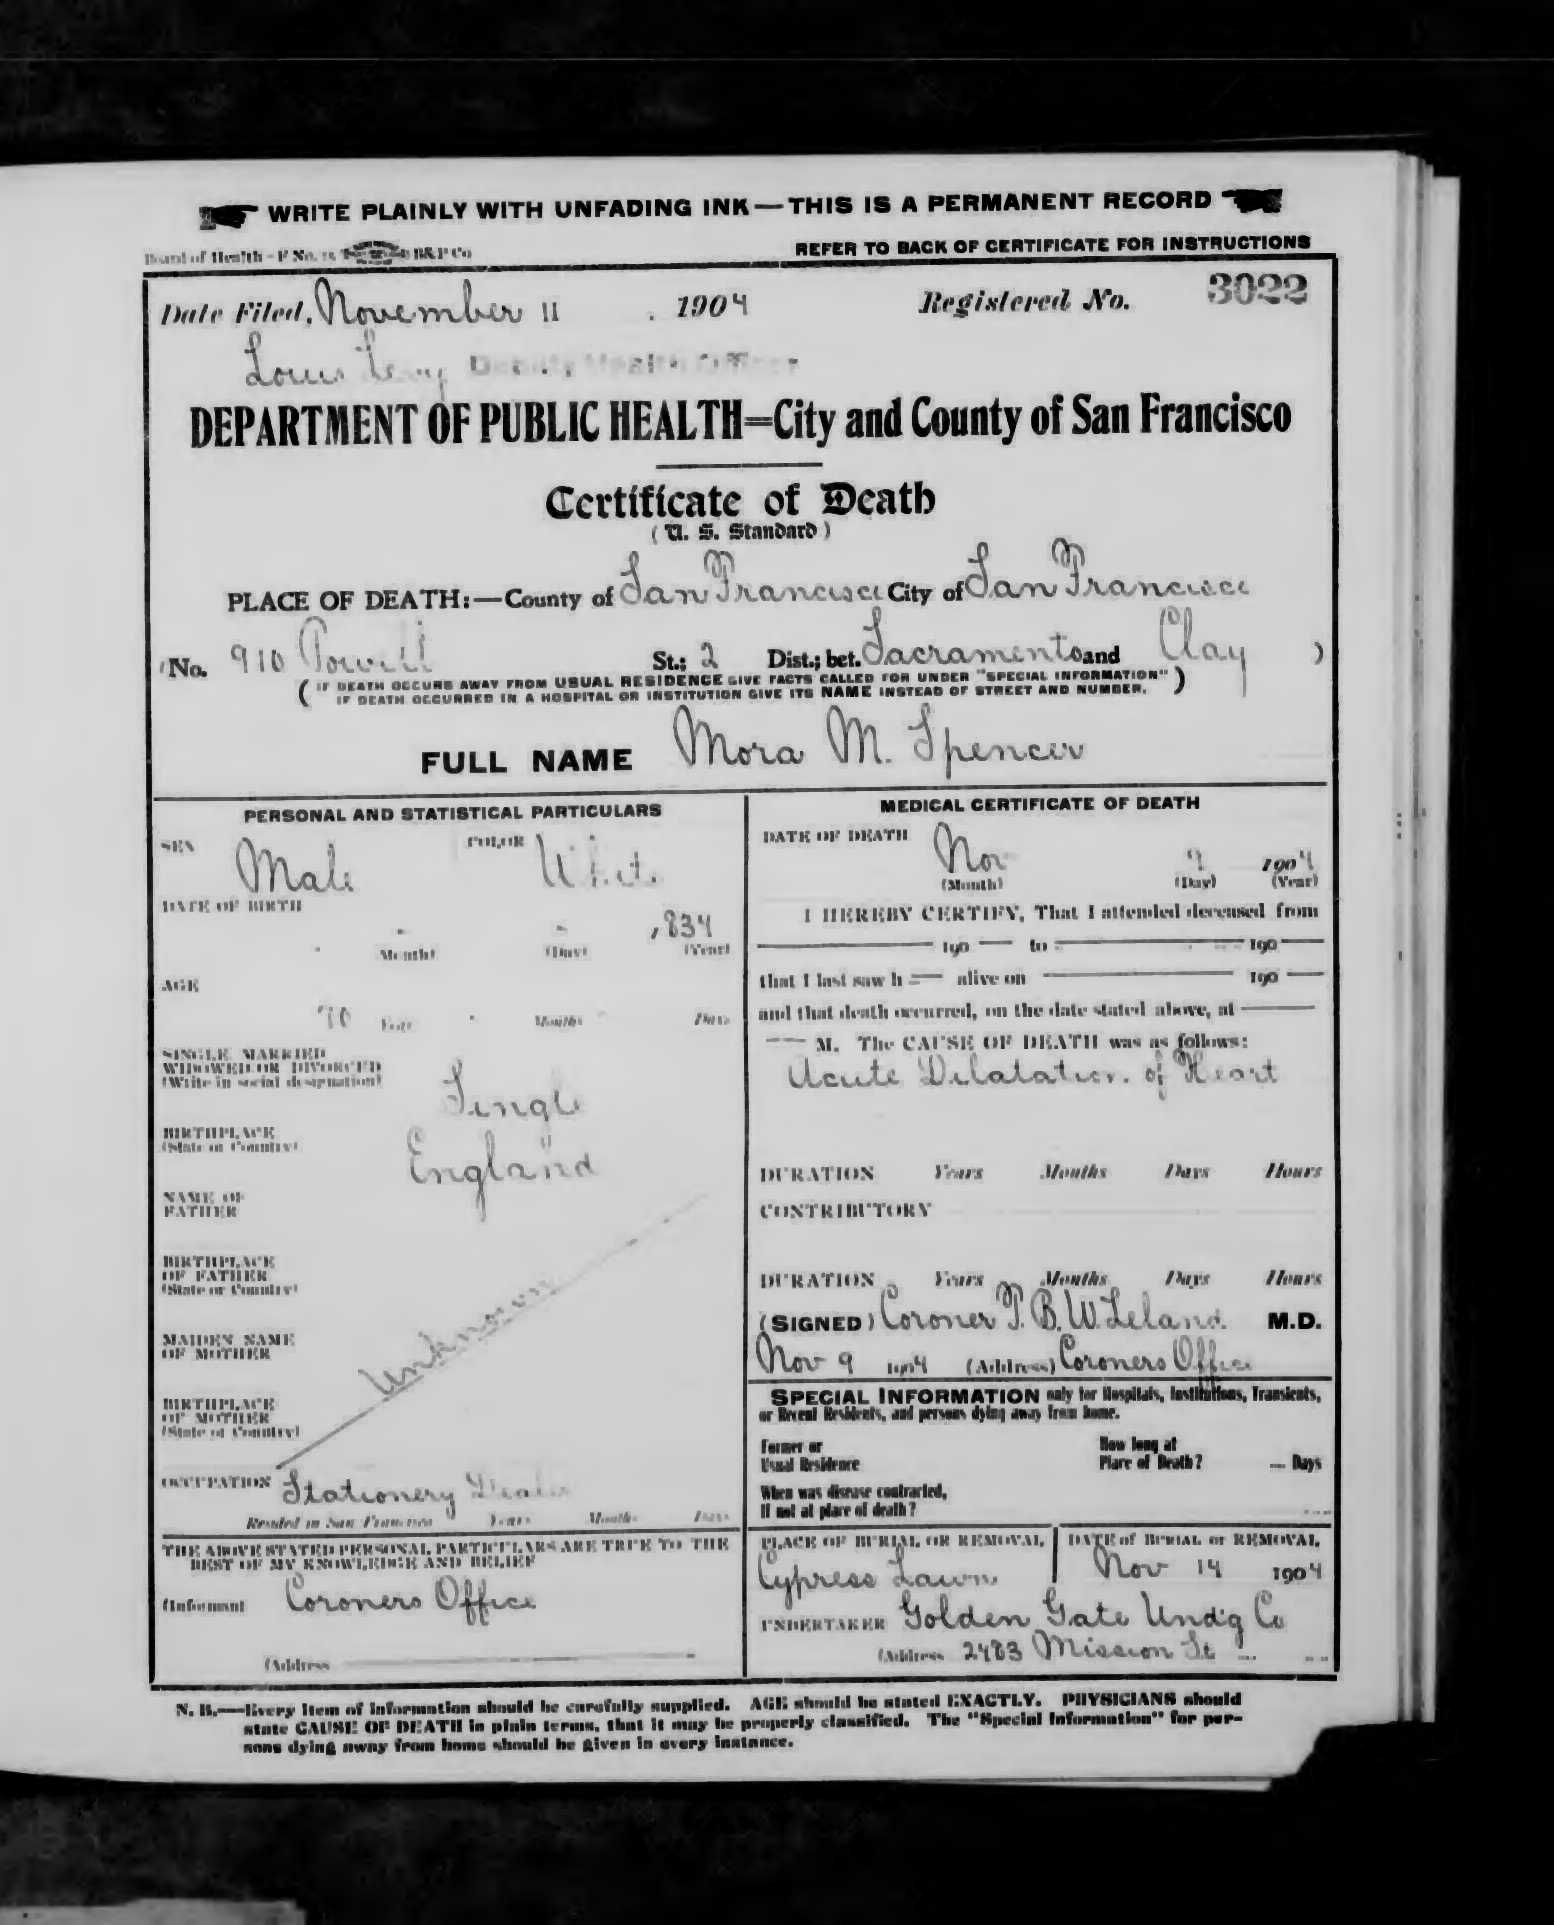 WRITE PLAINLY WITH UNFADING INK—THIS IS A PERMANENT RECORD
Board of Health-F No. 15 B&P Co REFER TO BACK OF CERTIFICATE FOR INSTRUCTIONS
Date Filed, November 11, 1904 Registered No. 3022
Louis Levy Deputy Health Officer
DEPARTMENT OF PUBLIC HEALTH=City and County of San Francisco
Certificate of Death
(U. S. Standard)
PLACE OF DEATH:—County of San Francisco City of San Francisco
(No. 910 Powell St.; 2 Dist.; bet. Sacramento and Clay )
( IF DEATH OCCURS AWAY FROM USUAL RESIDENCE GIVE FACTS CALLED FOR UNDER "SPECIAL INFORMATION" )
( IF DEATH OCCURRED IN A HOSPITAL OR INSTITUTION GIVE ITS NAME INSTEAD OF STREET AND NUMBER. )
FULL NAME Mora M. Spencer
PERSONAL AND STATISTICAL PARTICULARS
SEX Male COLOR White
DATE OF BIRTH
1834
(Month) (Day) (Year)
AGE
70 Years Months Days
SINGLE MARRIED
WIDOWED OR DIVORCED
(Write in social designation)
Single
BIRTHPLACE
(State or Country)
England
NAME OF
FATHER
BIRTHPLACE
OF FATHER
(State or Country)
Unknown
MAIDEN NAME
OF MOTHER
BIRTHPLACE
OF MOTHER
(State or Country)
OCCUPATION Stationery Dealer
Resided in San Francisco Years Months Days
THE ABOVE STATED PERSONAL PARTICULARS ARE TRUE TO THE
BEST OF MY KNOWLEDGE AND BELIEF
(Informant Coroners Office
(Address
MEDICAL CERTIFICATE OF DEATH
DATE OF DEATH
Nov 9 1904
(Month) (Day) (Year)
I HEREBY CERTIFY, That I attended deceased from
190 to 190
that I last saw h alive on 190
and that death occurred, on the date stated above, at
M. The CAUSE OF DEATH was as follows:
Acute Dilatation of Heart
DURATION Years Months Days Hours
CONTRIBUTORY
DURATION Years Months Days Hours
(SIGNED) Coroner T. B. W. Leland. M.D.
Nov 9 1904 (Address) Coroners Office
SPECIAL INFORMATION only for Hospitals, Institutions, Transients,
or Recent Residents, and persons dying away from home.
Former or
Usual Residence
How long at
Place of Death? Days
When was disease contracted,
If not at place of death?
PLACE OF BURIAL OR REMOVAL
Cypress Lawn
DATE of BURIAL or REMOVAL
Nov 14 1904
UNDERTAKER Golden Gate Undg Co
(Address 2483 Mission St
N. B.—Every item of information should be carefully supplied. AGE should be stated EXACTLY. PHYSICIANS should
state CAUSE OF DEATH in plain terms, that it may be properly classified. The "Special Information" for per-
sons dying away from home should be given in every instance.